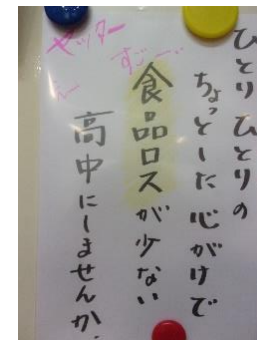 ひとり ひとりの
ちょっとした 心がけで
食品ロスが少ない
高中にしませんか.
ヤッター
すごーい